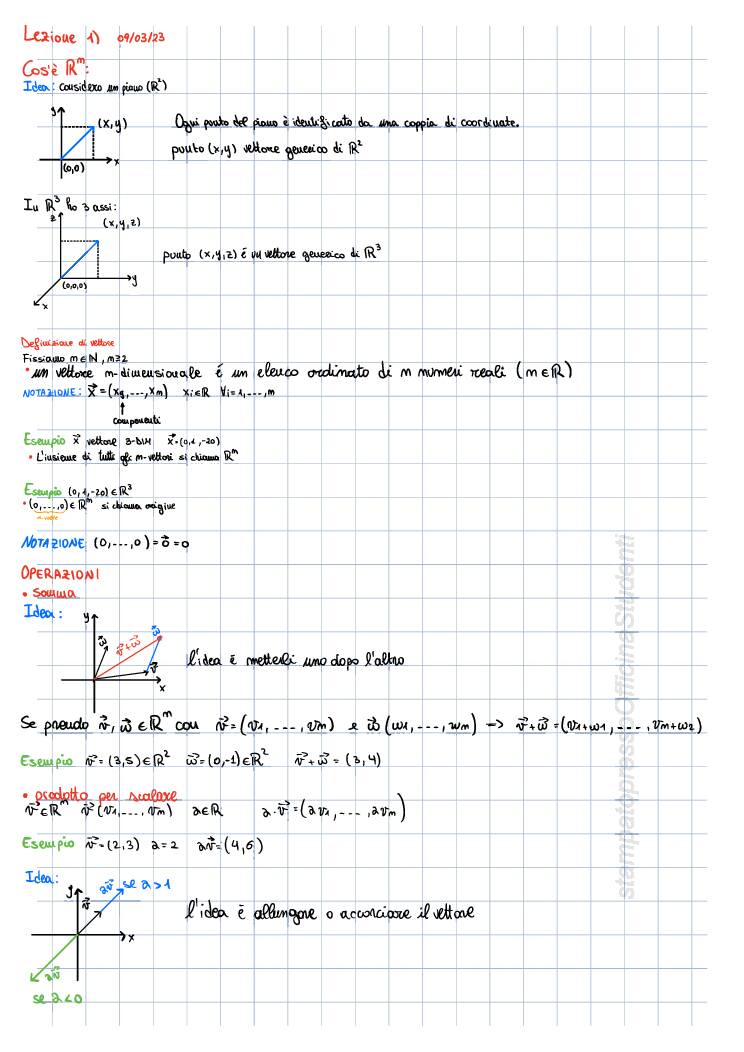 Lezione 1) 09/03/23
Cos'è ℝᵐ:
Idea: considero un piano (ℝ²)
y
(x,y)
x
(0,0)
Ogni punto del piano è identificato da una coppia di coordinate.
punto (x,y) vettore generico di ℝ²
In ℝ³ ho 3 assi:
z
(x,y,z)
y
(0,0,0)
x
punto (x,y,z) é un vettore generico di ℝ³
Definizione di vettore
Fissiamo m∈ℕ, m≥2
• un vettore m-dimensionale é un elenco ordinato di m numeri reali (m∈ℝ)
NOTAZIONE: x⃗=(x₁,---,xm) xi∈ℝ ∀i=1,---,m
componenti
Esempio x⃗ vettore 3-DIM x⃗=(0,1,-20)
• L'insieme di tutti gli m-vettori si chiama ℝᵐ
Esempio (0,1,-20)∈ℝ³
• (0,---,0)∈ℝᵐ si chiama origine
m volte
NOTAZIONE: (0,---,0)=0⃗=0
OPERAZIONI
• Somma
Idea:
y
w⃗
v⃗+w⃗
w⃗
v⃗
x
l'idea é metterli uno dopo l'altro
Se prendo v⃗, w⃗∈ℝᵐ con v⃗=(v1,---,vm) e w⃗(w1,---,wm) -> v⃗+w⃗=(v1+w1,---,vm+w2)
Esempio v⃗=(3,5)∈ℝ² w⃗=(0,-1)∈ℝ² v⃗+w⃗=(3,4)
• prodotto per scalare
v⃗∈ℝᵐ v⃗(v1,---,vm) a∈ℝ a·v⃗=(av1,---,avm)
Esempio v⃗=(2,3) a=2 av⃗=(4,6)
Idea:
y
v⃗
av⃗ se a>1
x
av⃗
se a<0
l'idea é allungare o accorciare il vettore
stampatopressoOfficinaStudenti